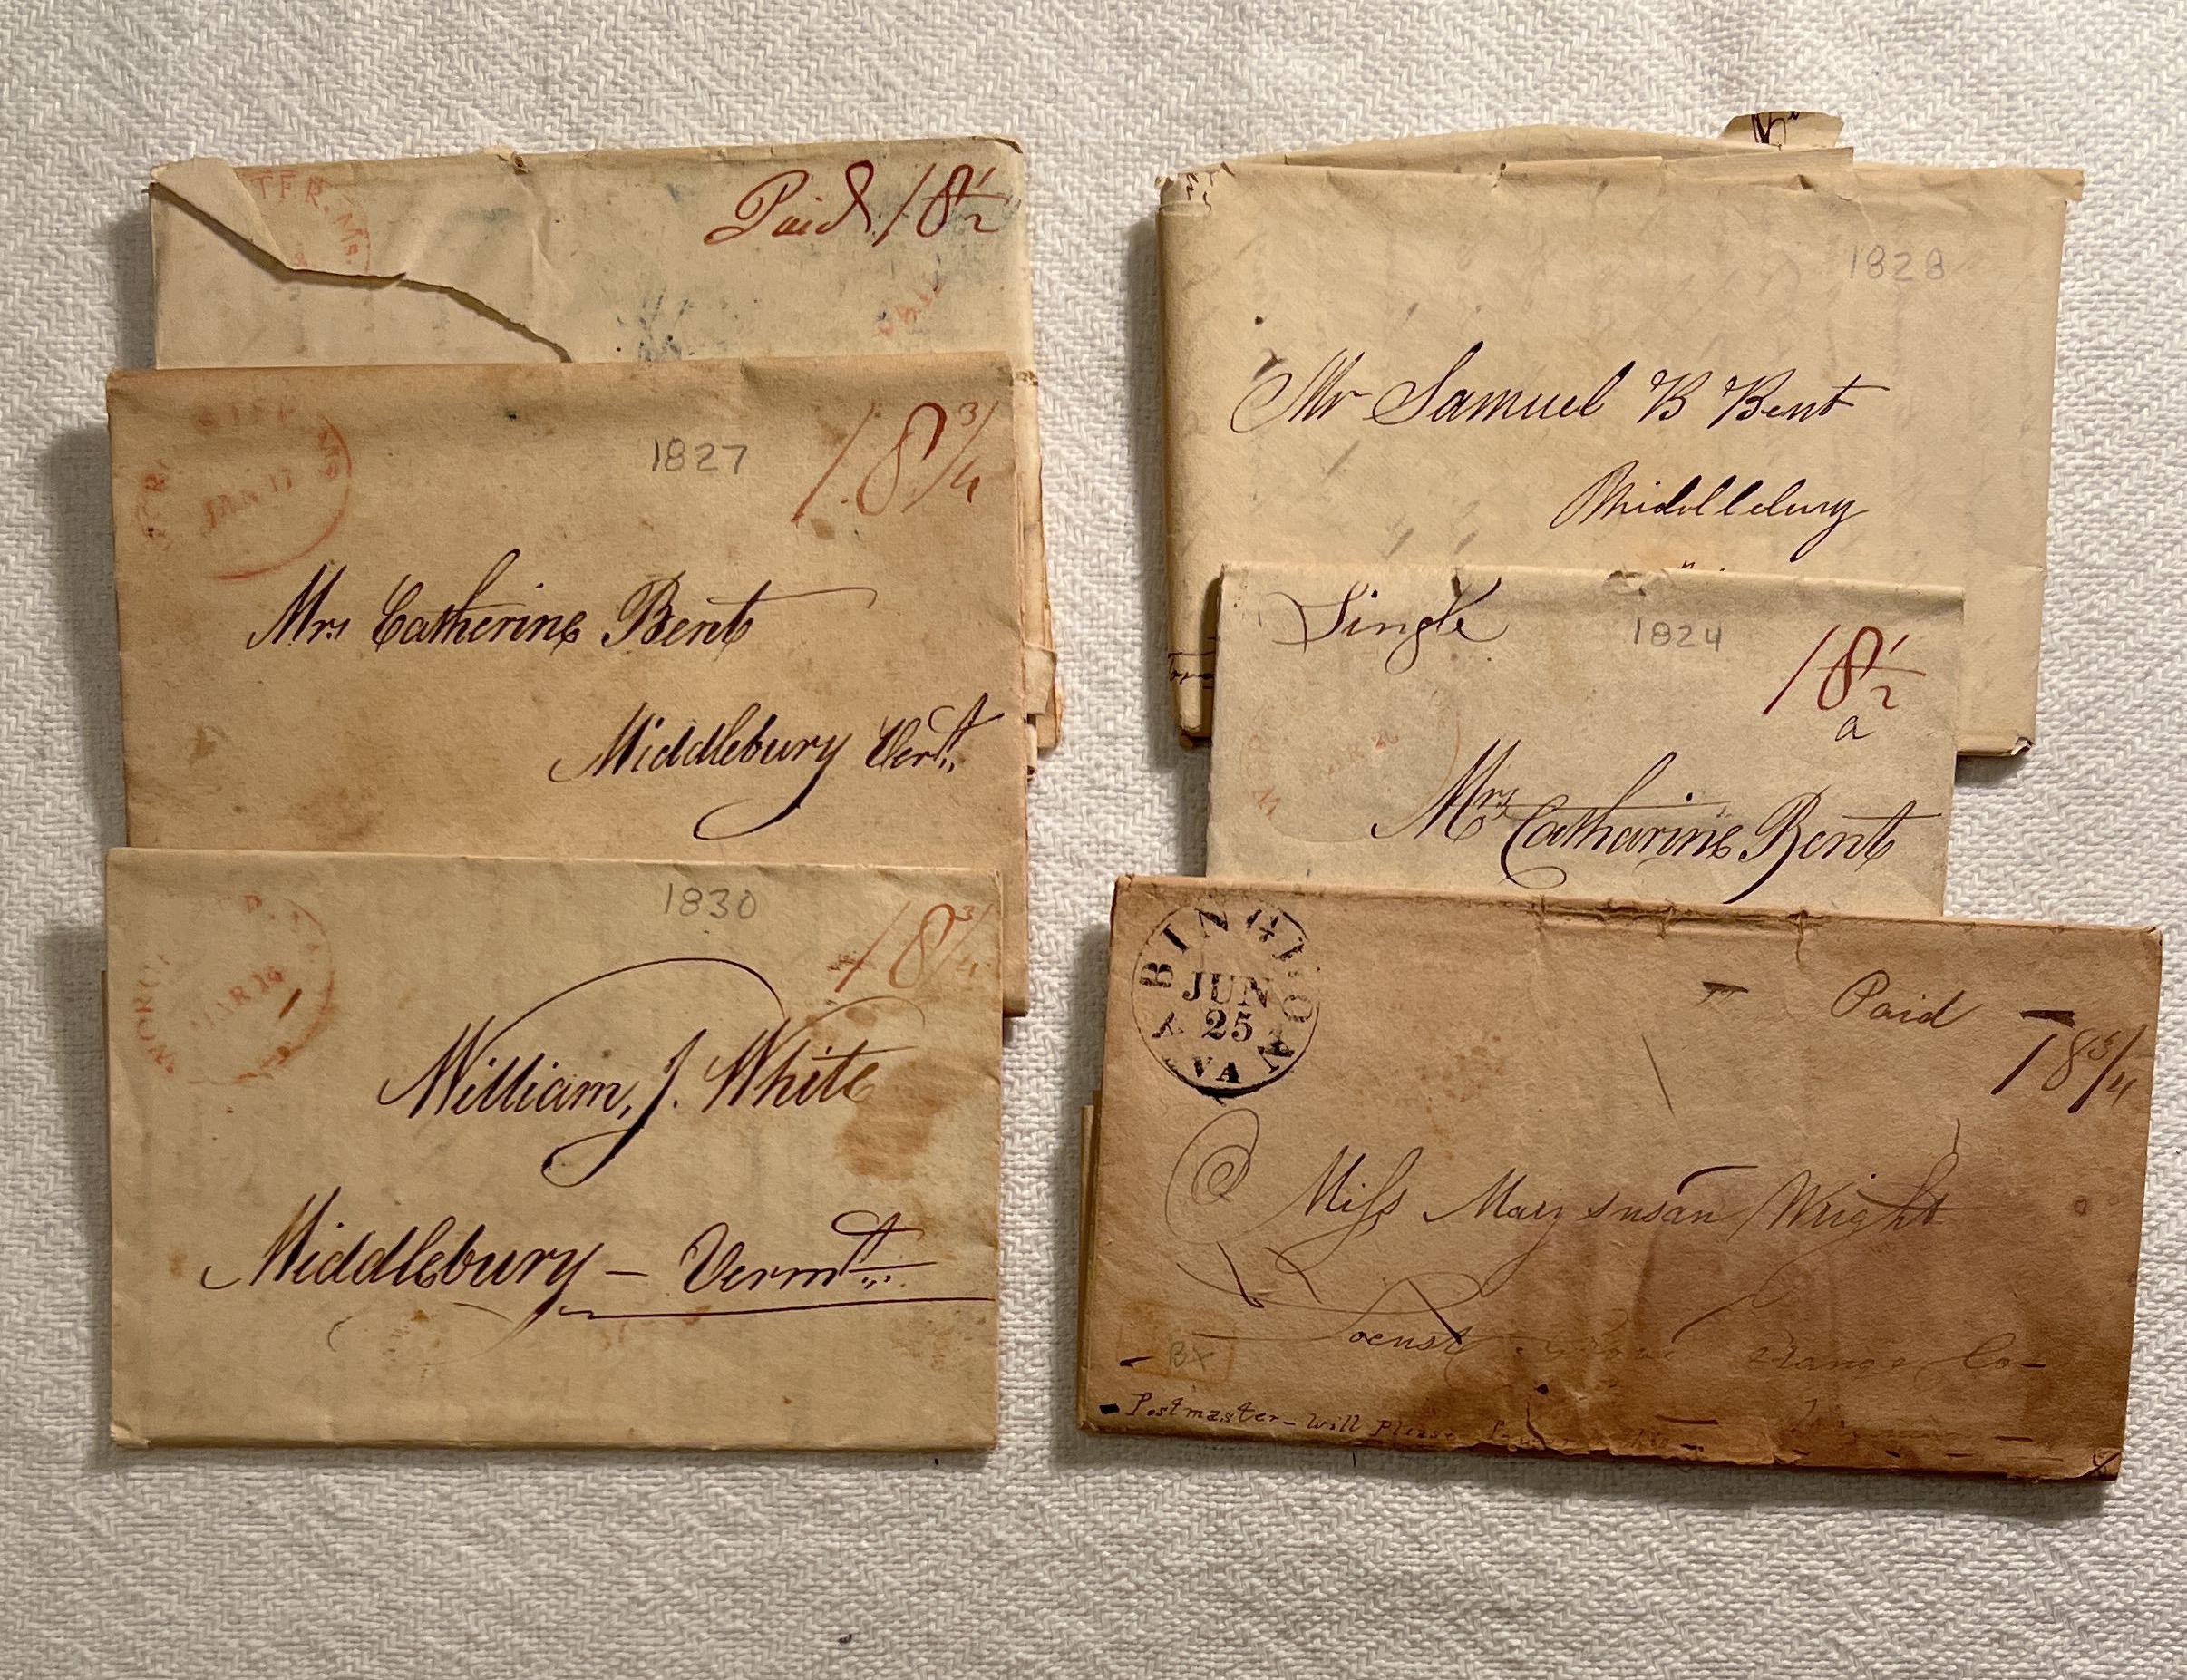 TER. Ms.
Paid 18 1/2
PAID
JAN 17
1827
18 3/4
Mrs Catherine Bent
Middlebury Vermt.
1830
18 3/4
MAR 14
William, J. White
Middlebury — Vermt.
1828
Mr Samuel B Bent
Middlebury
Single
1824
18 1/2
a
Mrs Catharine Bent
ABINGTON
JUN
25
VA
Paid
18 3/4
Miss Mary Susan Wright
Locust Grove Orange Co—
BX
Postmaster — will Please